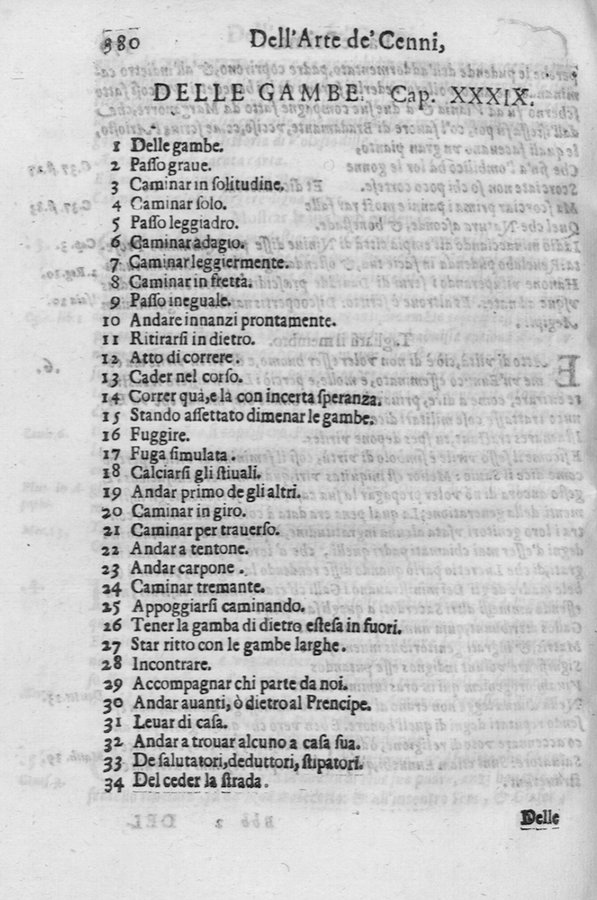 380 Dell'Arte de' Cenni,
DELLE GAMBE. Cap. XXXIX.
1 Delle gambe.
2 Paſſo graue.
3 Caminar in ſolitudine.
4 Caminar ſolo.
5 Paſſo leggiadro.
6 Caminar adagio.
7 Caminar leggiermente.
8 Caminar in fretta.
9 Paſſo ineguale.
10 Andare innanzi prontamente.
11 Ritirarſi in dietro.
12 Atto di correre.
13 Cader nel corſo.
14 Correr quà, e là con incerta ſperanza.
15 Stando aſſettato dimenar le gambe.
16 Fuggire.
17 Fuga ſimulata.
18 Calciarſi gli ſtiuali.
19 Andar primo de gli altri.
20 Caminar in giro.
21 Caminar per trauerſo.
22 Andar a tentone.
23 Andar carpone.
24 Caminar tremante.
25 Appoggiarſi caminando.
26 Tener la gamba di dietro eſteſa in fuori.
27 Star ritto con le gambe larghe.
28 Incontrare.
29 Accompagnar chi parte da noi.
30 Andar auanti, ò dietro al Prencipe.
31 Leuar di caſa.
32 Andar a trouar alcuno a caſa ſua.
33 De ſalutatori, deduttori, ſtipatori.
34 Del ceder la ſtrada.
Delle